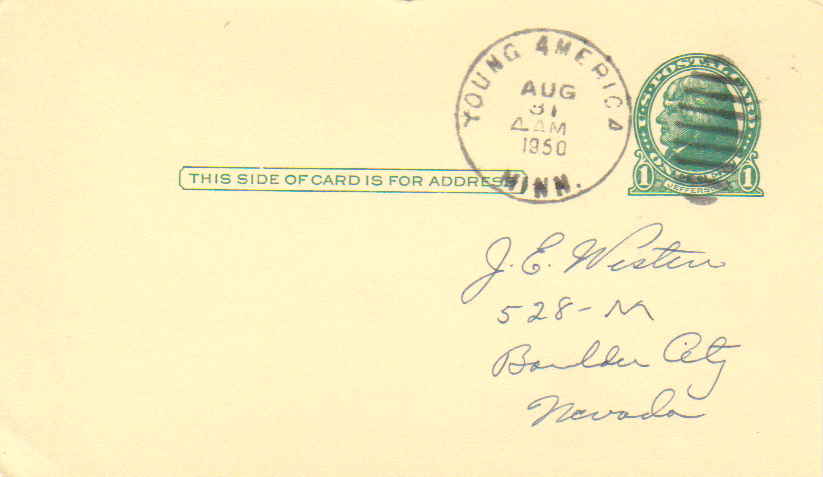 YOUNG AMERICA
AUG
31
4 AM
1950
MINN.
U.S. POSTAL CARD
ONE CENT
1 JEFFERSON 1
THIS SIDE OF CARD IS FOR ADDRESS
J. E. Westen
528-M
Boulder City
Nevada